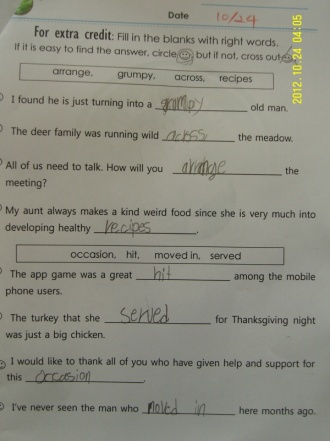 Date 10/24
For extra credit: Fill in the blanks with right words.
If it is easy to find the answer, circle but if not, cross out
arrange, grumpy, across, recipes
I found he is just turning into a grumpy old man.
The deer family was running wild across the meadow.
All of us need to talk. How will you arrange the
meeting?
My aunt always makes a kind weird food since she is very much into
developing healthy recipes.
occasion, hit, moved in, served
The app game was a great hit among the mobile
phone users.
The turkey that she served for Thanksgiving night
was just a big chicken.
I would like to thank all of you who have given help and support for
this occasion.
I've never seen the man who moved in here months ago.
2012.10.24 04:05